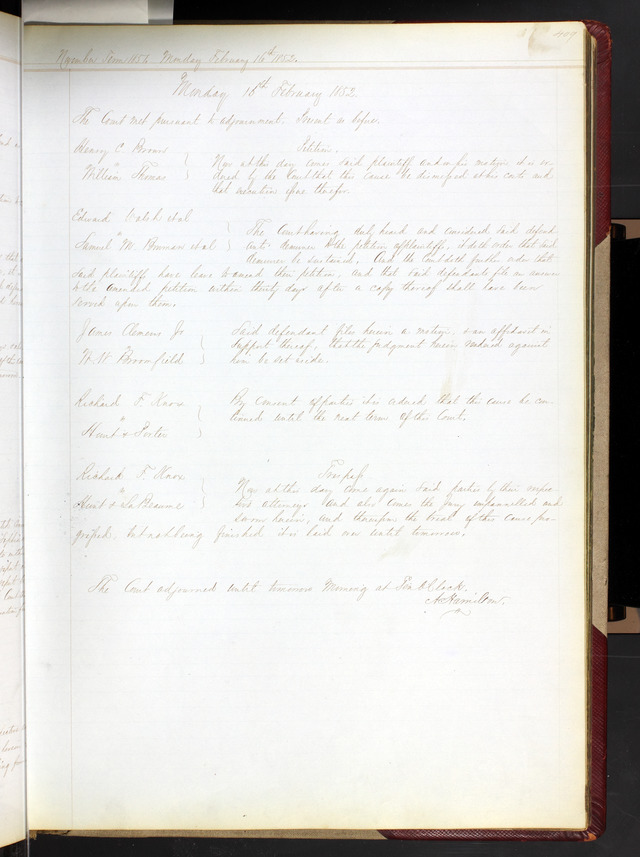 407
November Term 1851. Monday February 16th 1852.
Monday 16th February 1852.
The Court met pursuant to adjournment. Present as before.
Henry C. Brown
vs
William Thomas
Petition.
Now at this day comes said plaintiff and on his motion it is or-
dered by the Court that this cause be dismissed at his costs and
that execution issue therefor.
Edward Walsh et al
vs
Samuel M. Bowman et al
The Court having duly heard and considered said defend-
ants demurrer to the petition of plaintiff, it doth order that said
demurrer be sustained. And the Court doth further order that
said plaintiff have leave to amend their petition, and that said defendants file an answer
to the amended petition within thirty days after a copy thereof shall have been
served upon them.
James Clemens Jr
vs
W. W. Broomfield
Said defendant files herein a motion, & an affidavit in
support thereof, that the judgment herein rendered against
him be set aside.
Richard F. Knox
vs
Hunt & Porter
By consent of parties it is ordered that this cause be con-
tinued until the next term of this Court.
Richard F. Knox
vs
Hunt & LaBeaume
Trespass
Now at this day come again said parties by their respec-
tive attorneys And also comes the Jury impannelled and
sworn herein, and thereupon the trial of this cause pro-
gressed, but not being finished it is laid over until tomorrow.
The Court adjourned until tomorrow Morning at Ten O'Clock.
A. Hamilton.